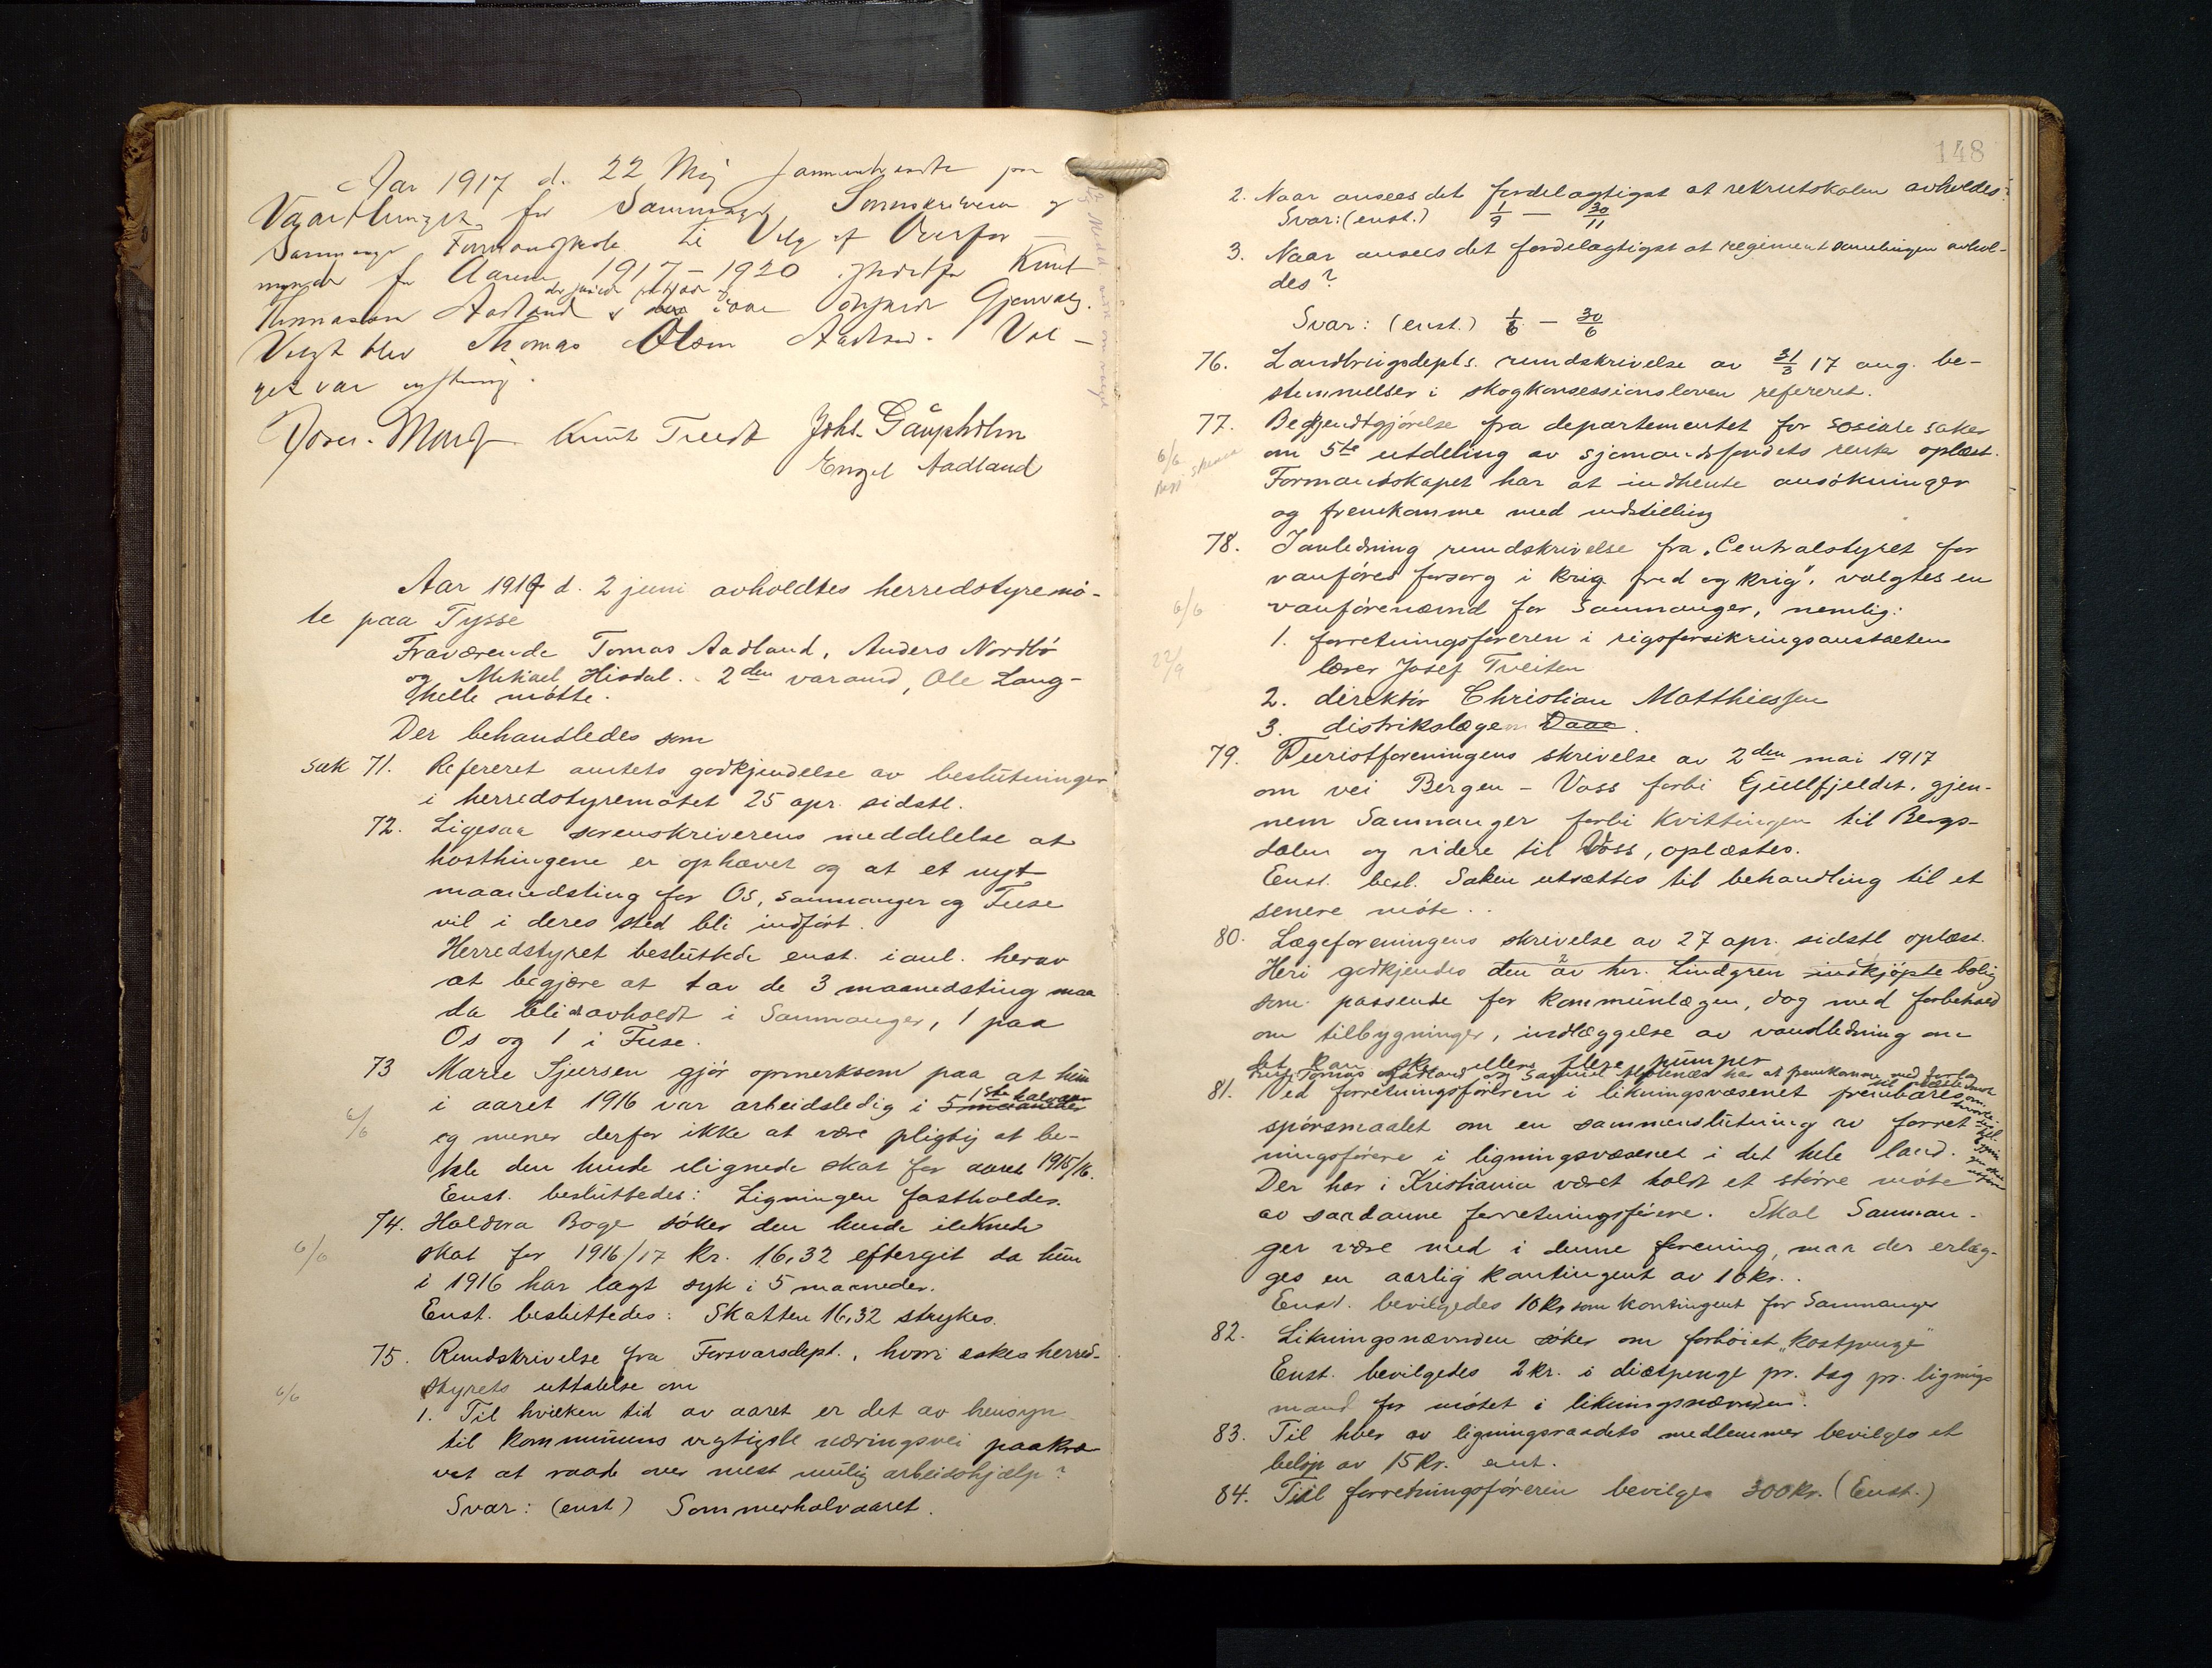 Aar 1917 d. 22 Maj sammentraadte paa
Vaarthinget for Samnanger Sorenskriveren og
Samnanger Formandskab til Valg af Overfor-
mynder for Aarene 1917-1920 istedetfor Knut
Thomassen Aadland
Valgt blev Thomas Olsen Aadland. Val-
get var enstemmig.
Knut Tveidt Johs. Gåupholm
Engel Aadland
Aar 1917 d. 2 juni avholdtes herredstyremø-
te paa Tysse
Fraværende Tomas Aadland, Anders Nordbø
og Mikael Hisdal. 2den varamd, Ole Lang-
helle møtte.
Der behandledes som
sak 71. Refereret amtets godkjendelse av beslutninger
i herredstyremøtet 25 apr. sidstl.
72. Ligesaa sorenskriverens meddelelse at
høsthingene er ophævet og at et nyt
maanedsting for Os, Samnanger og Fuse
vil i deres sted bli indført.
Herredstyret besluttede enst. i anl. herav
at begjære at 1 av de 3 maanedsting maa
da bli avholdt i Samnanger, 1 paa
Os og 1 i Fuse.
73 Marie Sjursen gjør opmerksom paa at hun
i aaret 1916 var arbeidsledig i 5 maaneder 1ste halvaar
6/6
og mener derfor ikke at være pligtig at be-
tale den hende ilignede skat for aaret 1915/16.
Enst. besluttedes: Ligningen fastholdes.
74. Haldora Boge søker den hende iliknede
6/6
skat for 1916/17 kr. 16,32 eftergit da hun
i 1916 har lagt syk i 5 maaneder.
Enst. besluttedes: Skatten 16,32 strykes.
75. Rundskrivelse fra Forsvarsdept., hvori æskes herred-
styrets uttalelse om
6/6
1. Til hvilken tid av aaret er det av hensyn
til kommunens vigtigste næringsvei paakræ-
vet at raade over mest mulig arbeidshjælp?
Svar: (enst) Sommerhalvaaret.
148
2. Naar ansees det fordelagtigst at rekrutskolen avholdes?
Svar: (enst.) 1/9 — 30/11
3. Naar ansees det fordelagtigst at regimentsamlingen avhol-
des?
Svar: (enst.) 1/6 — 30/6
76. Landbrugsdepts. rundskrivelse av 31/3 17 ang. be-
stemmelser i skogkonsessionsloven refereret.
77. Bekjendtgjørelse fra departementet for sosiale saker
6/6
om 5te utdeling av sjømandsfondets renter oplæst.
Formandskapet har at indhente ansøkninger
og fremkomme med indstilling
78. I anledning rundskrivelse fra "Centralstyret for
vanføres forsorg i krig fred og krig", valgtes en
6/6
vanførenævnd for Samnanger, nemlig:
1. forretningsføreren i rigsforsikringsanstalten
22/9
lærer Josef Tveiten
2. direktør Christian Matthiessen
3. distrikslægen Daae.
79. Turistforeningens skrivelse av 2den mai 1917
om vei Bergen - Voss forbi Gullfjeldet, gjen-
nem Samnanger forbi Kvittingen til Bergs-
dalen og videre til Voss, oplæstes.
Enst. besl. Saken utsættes til behandling til et
senere møte.
80. Lægeforeningens skrivelse av 27 apr. sidstl oplæst.
Heri godkjendes den av hr. Lindgren inkjøpte bolig
som passende for kommunlægen, dog med forbehold
om tilbygninger, indlæggelse av vandledning om
det kan ske eller flere pumper
81. Ved forretningsføreren i likningsvæsenet frembæres
spørsmaalet om en sammenslutning av forret-
ningsførere i ligningsvæsenet i det hele land.
Der har i Kristiania været holdt et større møte
av saadanne forretningsførere. Skal Samnan-
ger være med i denne forening, maa der erlæg-
ges en aarlig kontingent av 10 kr.
Enst. bevilgedes 10 kr som kontingent for Samnanger
82. Likningsnævnden søker om forhøiet "kostpenge"
Enst. bevilgedes 2 kr. i diætpenge pr. dag pr. lignings
mand for møtet i likningsnævnden.
83. Til hver av ligningsraadets medlemmer bevilges et
beløp av 15 kr. enst.
84. Till forretningsføreren bevilges 300 kr. (Enst.)